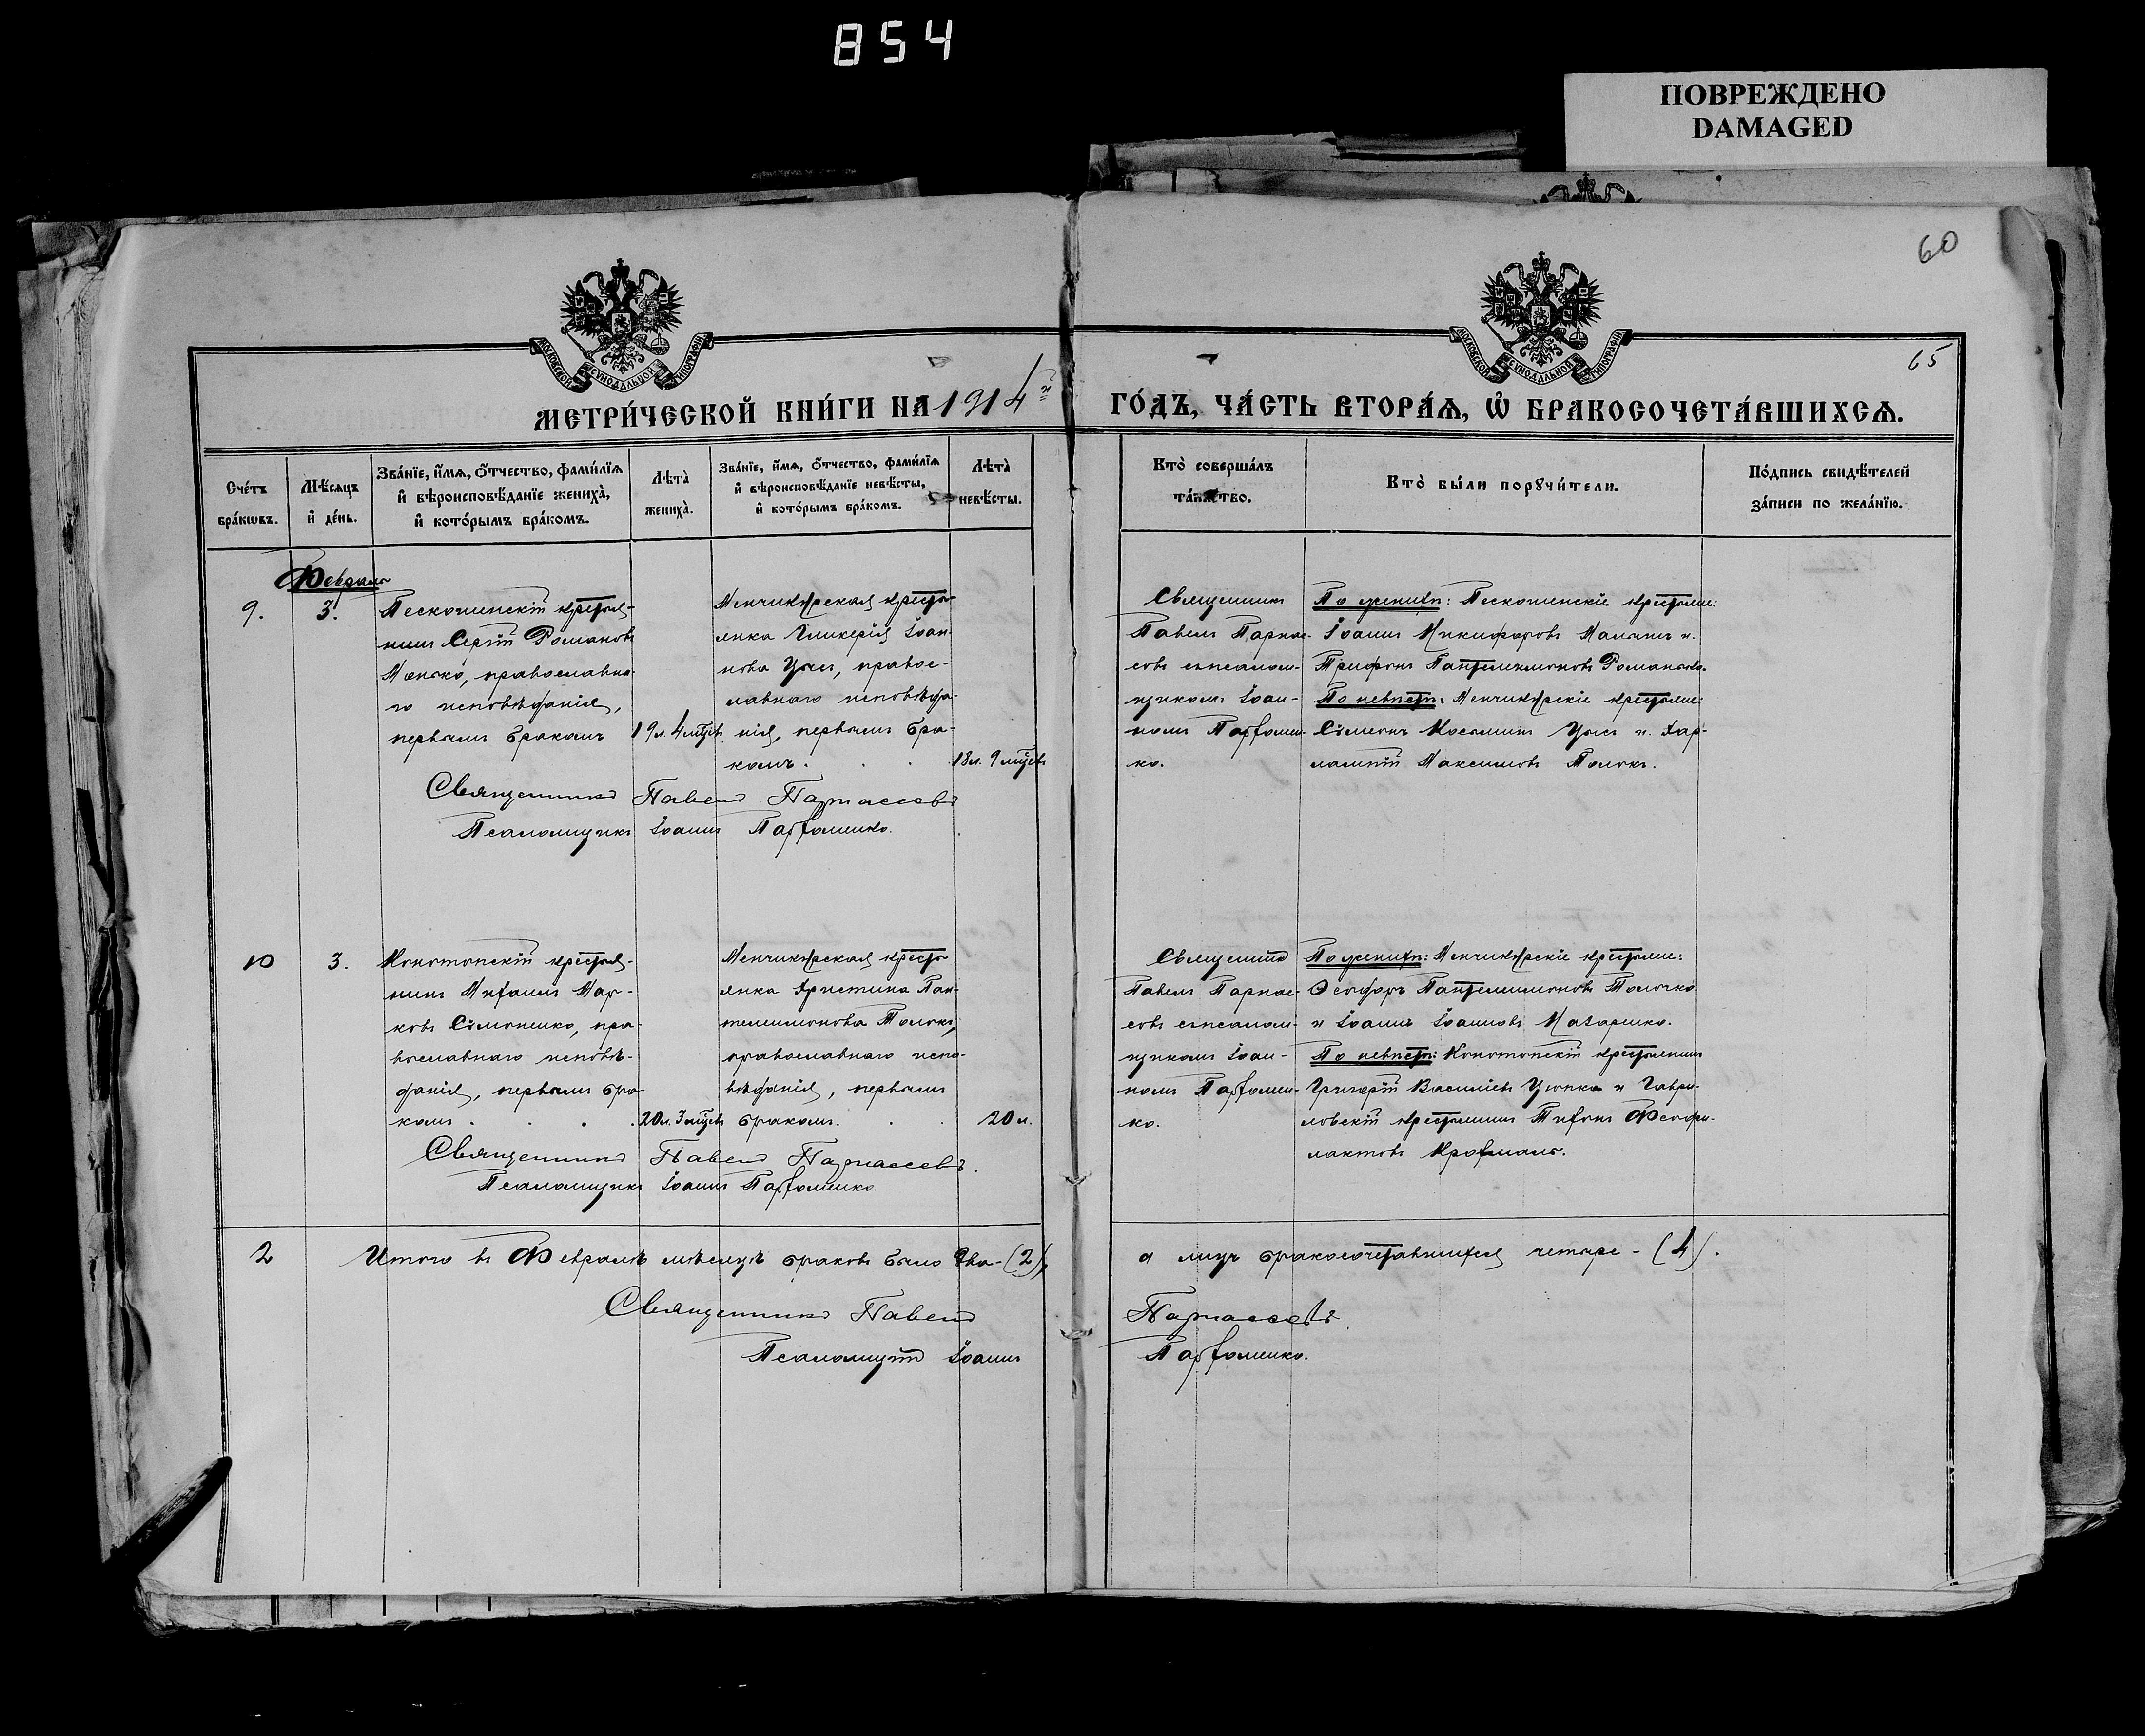 854
ПОВРЕЖДЕНО
DAMAGED
60
65
МОСКОВСКОЙ СУНОДАЛЬНОЙ ТИПОГРАФІИ
МОСКОВСКОЙ СУНОДАЛЬНОЙ ТИПОГРАФІИ
МЕТРИ́ЧЕСКОЙ КНИ́ГИ НА 1914й ГО́ДЪ, ЧА́СТЬ ВТОРА́Ѧ, Ѡ҆ БРАКОСОЧЕТА́ВШИХСѦ.
Сче́тъ бра́кѡвъ.
Мѣ́сѧцъ и҆ де́нь.
Зва́нїе, и҆́мѧ, ѻ҆́тчество, фами́лїѧ и҆ вѣроисповѣ́данїе жениха̀, и҆ кото́рымъ бра́комъ.
Лѣта̀ жениха̀.
Зва́нїе, и҆́мѧ, ѻ҆́тчество, фами́лїѧ и҆ вѣроисповѣ́данїе невѣ́сты, и҆ кото́рымъ бра́комъ.
Лѣта̀ невѣ́сты.
Кто̀ соверша́лъ та́инство.
Кто̀ бы́ли порꙋчи́тели.
По́дпись свидѣ́телей за́писи по жела́нїю.
Февраль
9.
3.
Пескошинскій крестья-
нинъ Сергій Романовъ
православна-
го исповѣданія,
первымъ бракомъ
19 л. 4 мцевъ
Менчикурская кресть-
янка Гликерія Іоан-
нова Усъ, правос-
лавнаго исповѣда-
нія, первымъ бра-
комъ.
18 л. 9 мцевъ
Священникъ
Павелъ Парнас-
совъ съ псалом-
щикомъ Іоан-
номъ Парфомен-
ко.
По женихѣ: Пескошинскіе крестьяне:
Іоаннъ Никифоровъ и
Трифонъ Пантелеимоновъ
По невѣстѣ: Менчикурскіе крестьяне:
Сѵмеонъ Косьминъ Усъ и Хар-
лампій Максимовъ Толокъ.
Священникъ Павелъ Парнассовъ
Псаломщикъ Іоаннъ Парфоменко.
10
3.
Конотопскій крестья-
нинъ Михаилъ Мар-
ковъ Сѵмоненко, пра-
вославнаго исповѣ-
данія, первымъ бра-
комъ
20 л. 3 мцевъ
Менчикурская кресть-
янка Христина Пан-
телеимонова Толокъ,
православнаго испо-
вѣданія, первымъ
бракомъ.
20 л.
Священникъ
Павелъ Парнас-
совъ съ псалом-
щикомъ Іоан-
номъ Парфомен-
ко.
По женихѣ: Менчикурскіе крестьяне:
Ѳеодоръ Пантелеимоновъ Толочко
и Іоаннъ Іоанновъ Назаренко.
По невѣстѣ: Конотопскій крестьянинъ
Григорій Василіевъ Цюпка и Гаври-
ловскій крестьянинъ Тихонъ Феофи-
лактовъ Крохмаль.
Священникъ Павелъ Парнассовъ.
Псаломщикъ Іоаннъ Парфоменко.
2
Итого въ Февралѣ мѣсяцѣ браковъ было два - (2), а лицъ бракосочетавшихся четыре - (4).
Священникъ Павелъ Парнассовъ.
Псаломщикъ Іоаннъ Парфоменко.